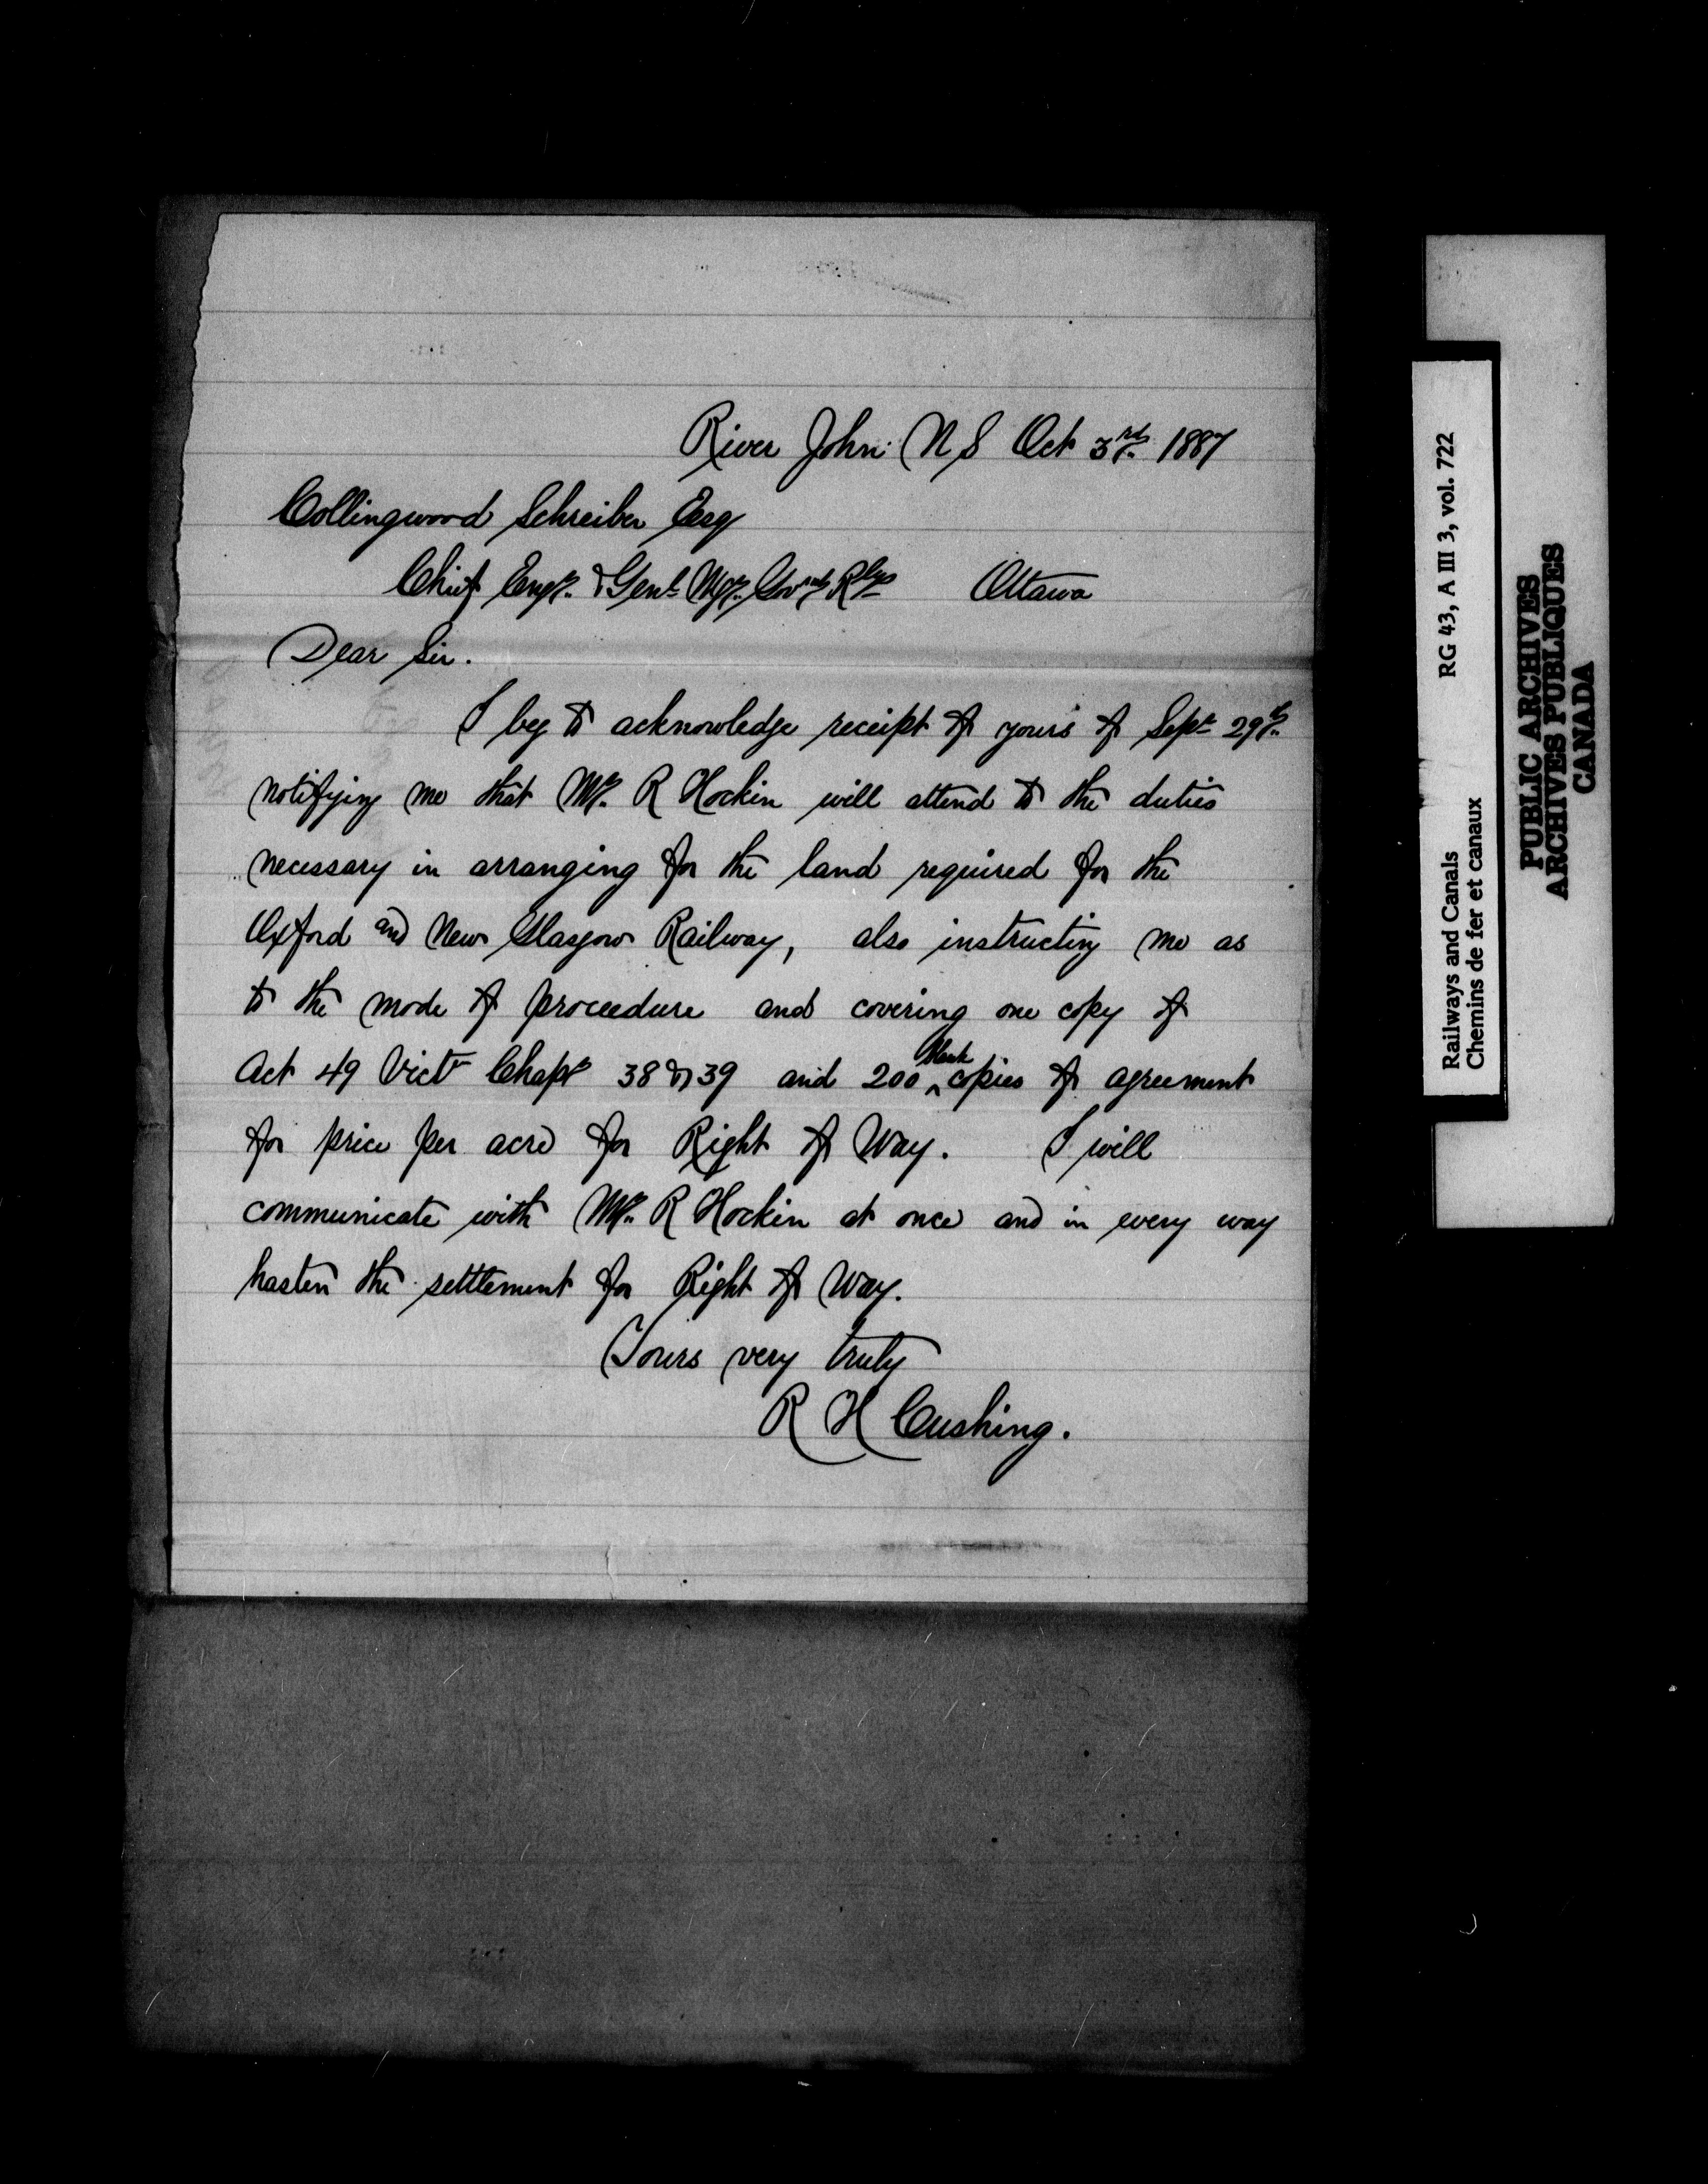 River John N S Oct 3rd 1887
Collingwood Schreiber Esq
Chief Engr. & Genl Mgr. Govmt Rlys Ottawa
Dear Sir.
I beg to acknowledge receipt of yours of Sept 29th.
notifying me that Mr. R Hockin will attend to the duties
necessary in arranging for the land required for the
Oxford and New Glasgow Railway, also instructing me as
to the mode of proceedure and covering one copy of
Act 49 Vict Chapt 38 & 39 and 200 blank copies of agreement
for price per acre for Right of Way. I will
communicate with Mr. R Hockin at once and in every way
hasten the settlement for Right of Way.
Yours very truly
R H Cushing.
Railways and Canals RG 43, A III 3, vol. 722
Chemins de fer et canaux
PUBLIC ARCHIVES
ARCHIVES PUBLIQUES
CANADA